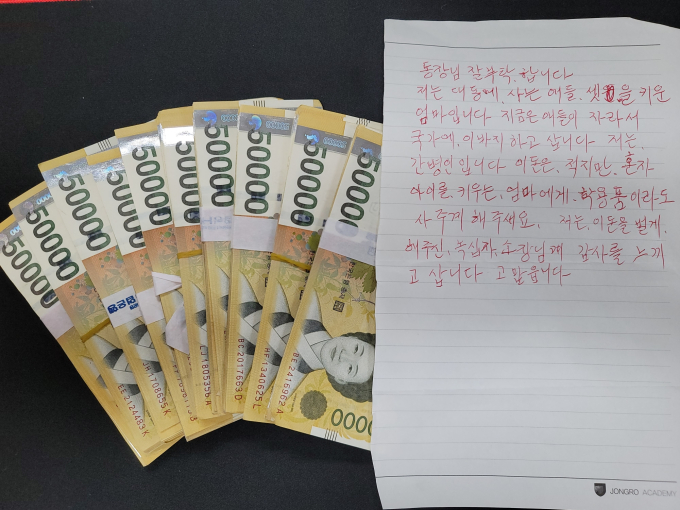 50000
50000
50000
50000
50000
50000
50000
50000
50000
50000
EE2124483K
JH1708655K
1805355A
BC2017663D
HF1340625L
BE2416962A
0000
동장님 잘부탁 합니다
저는 대동에, 사는 애들, 셋을 키운
엄마입니다 지금은 애들이 자라서
국가에, 이바지 하고 삽니다 저는,
간병인입니다 이돈은, 적지만, 혼자
아이를, 키우는, 엄마에게, 학용품이라도
사주께 해주세요, 저는, 이돈을 벌게,
해주신, 녹십자, 소장님께 감사를 느끼
고 삽니다 고맙습니다
JONGRO ACADEMY